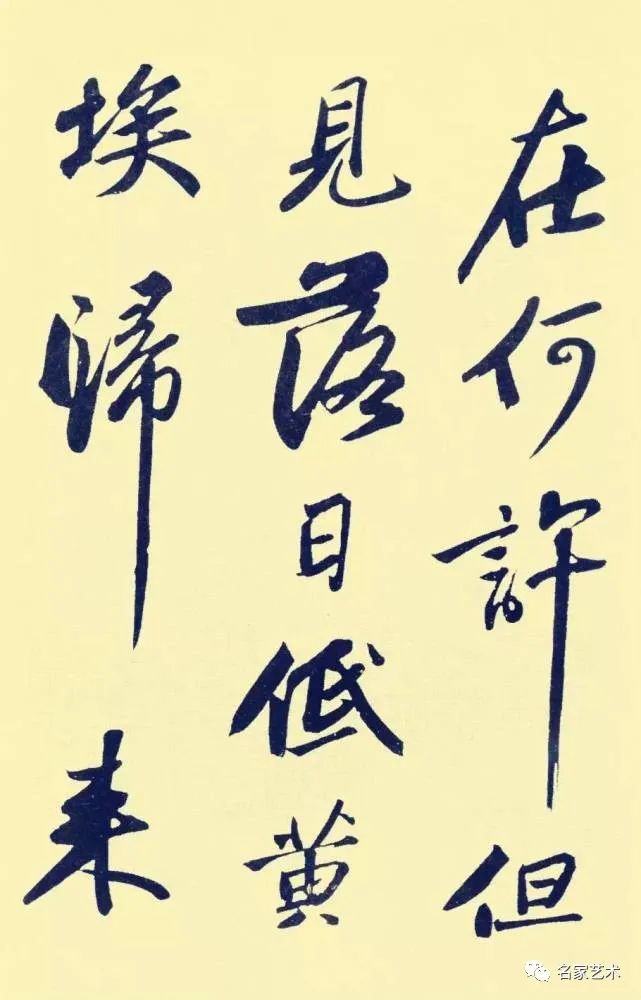 在何許但
見落日低黄
埃歸来
名家艺术